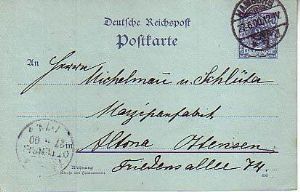 Deutsche Reichspost
Postkarte
An Herren Michelmau u Schlüter
Marzipanfabrik
Altona Ottensen
Friedensallee 74.
Wohnung